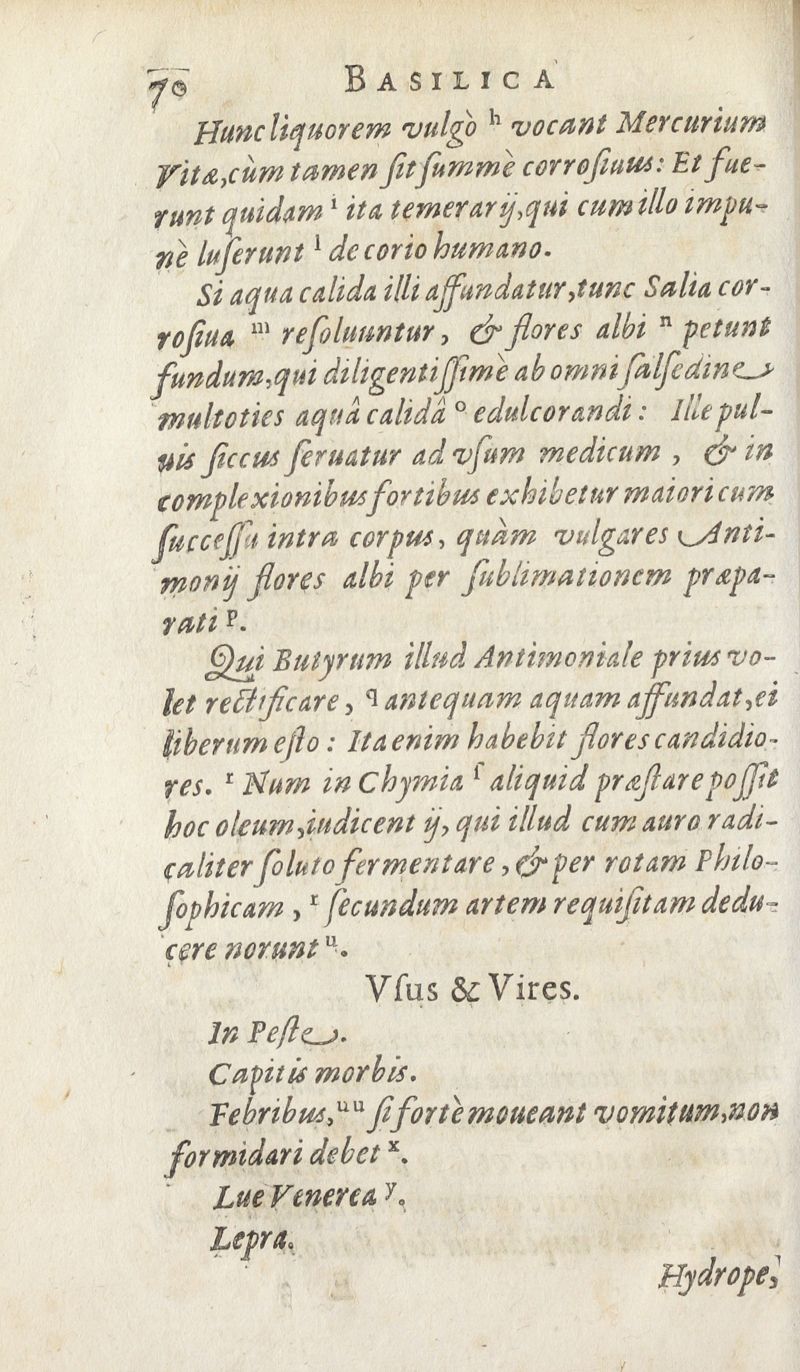 70 BASILICA
Hunc liquorem vulgò ʰ vocant Mercurium
Vitæ, cùm tamen ſit ſummè corroſiuus: Et fue-
runt quidam ⁱ ita temerarij, qui cum illo impu-
nè luſerunt ˡ de corio humano.
Si aqua calida illi affundatur, tunc Salia cor-
roſiua ᵐ reſoluuntur, & flores albi ⁿ petunt
fundum, qui diligentiſſimè ab omni ſalſedine
multoties aquâ calidâ ᵒ edulcorandi: Ille pul-
uis ſiccus ſeruatur ad vſum medicum, & in
complexionibus fortibus exhibetur maiori cum
ſucceſſu intra corpus, quàm vulgares Anti-
monij flores albi per ſublimationem præpa-
rati ᵖ.
Qui Butyrum illud Antimoniale prius vo-
let rectificare, q antequam aquam affundat, ei
liberum eſto: Ita enim habebit flores candidio-
res. ʳ Num in Chymia ſ aliquid præſtare poſſit
hoc oleum, iudicent ij, qui illud cum auro radi-
caliter ſoluto fermentare, & per rotam Philo-
ſophicam, ᵗ ſecundum artem requiſitam dedu-
cere norunt ᵘ.
Vſus & Vires.
In Peſte.
Capitis morbis.
Febribus, ᵘᵘ ſi fortè moueant vomitum, non
formidari debet ˣ.
Lue Venerea ʸ.
Lepra.
Hydrope,